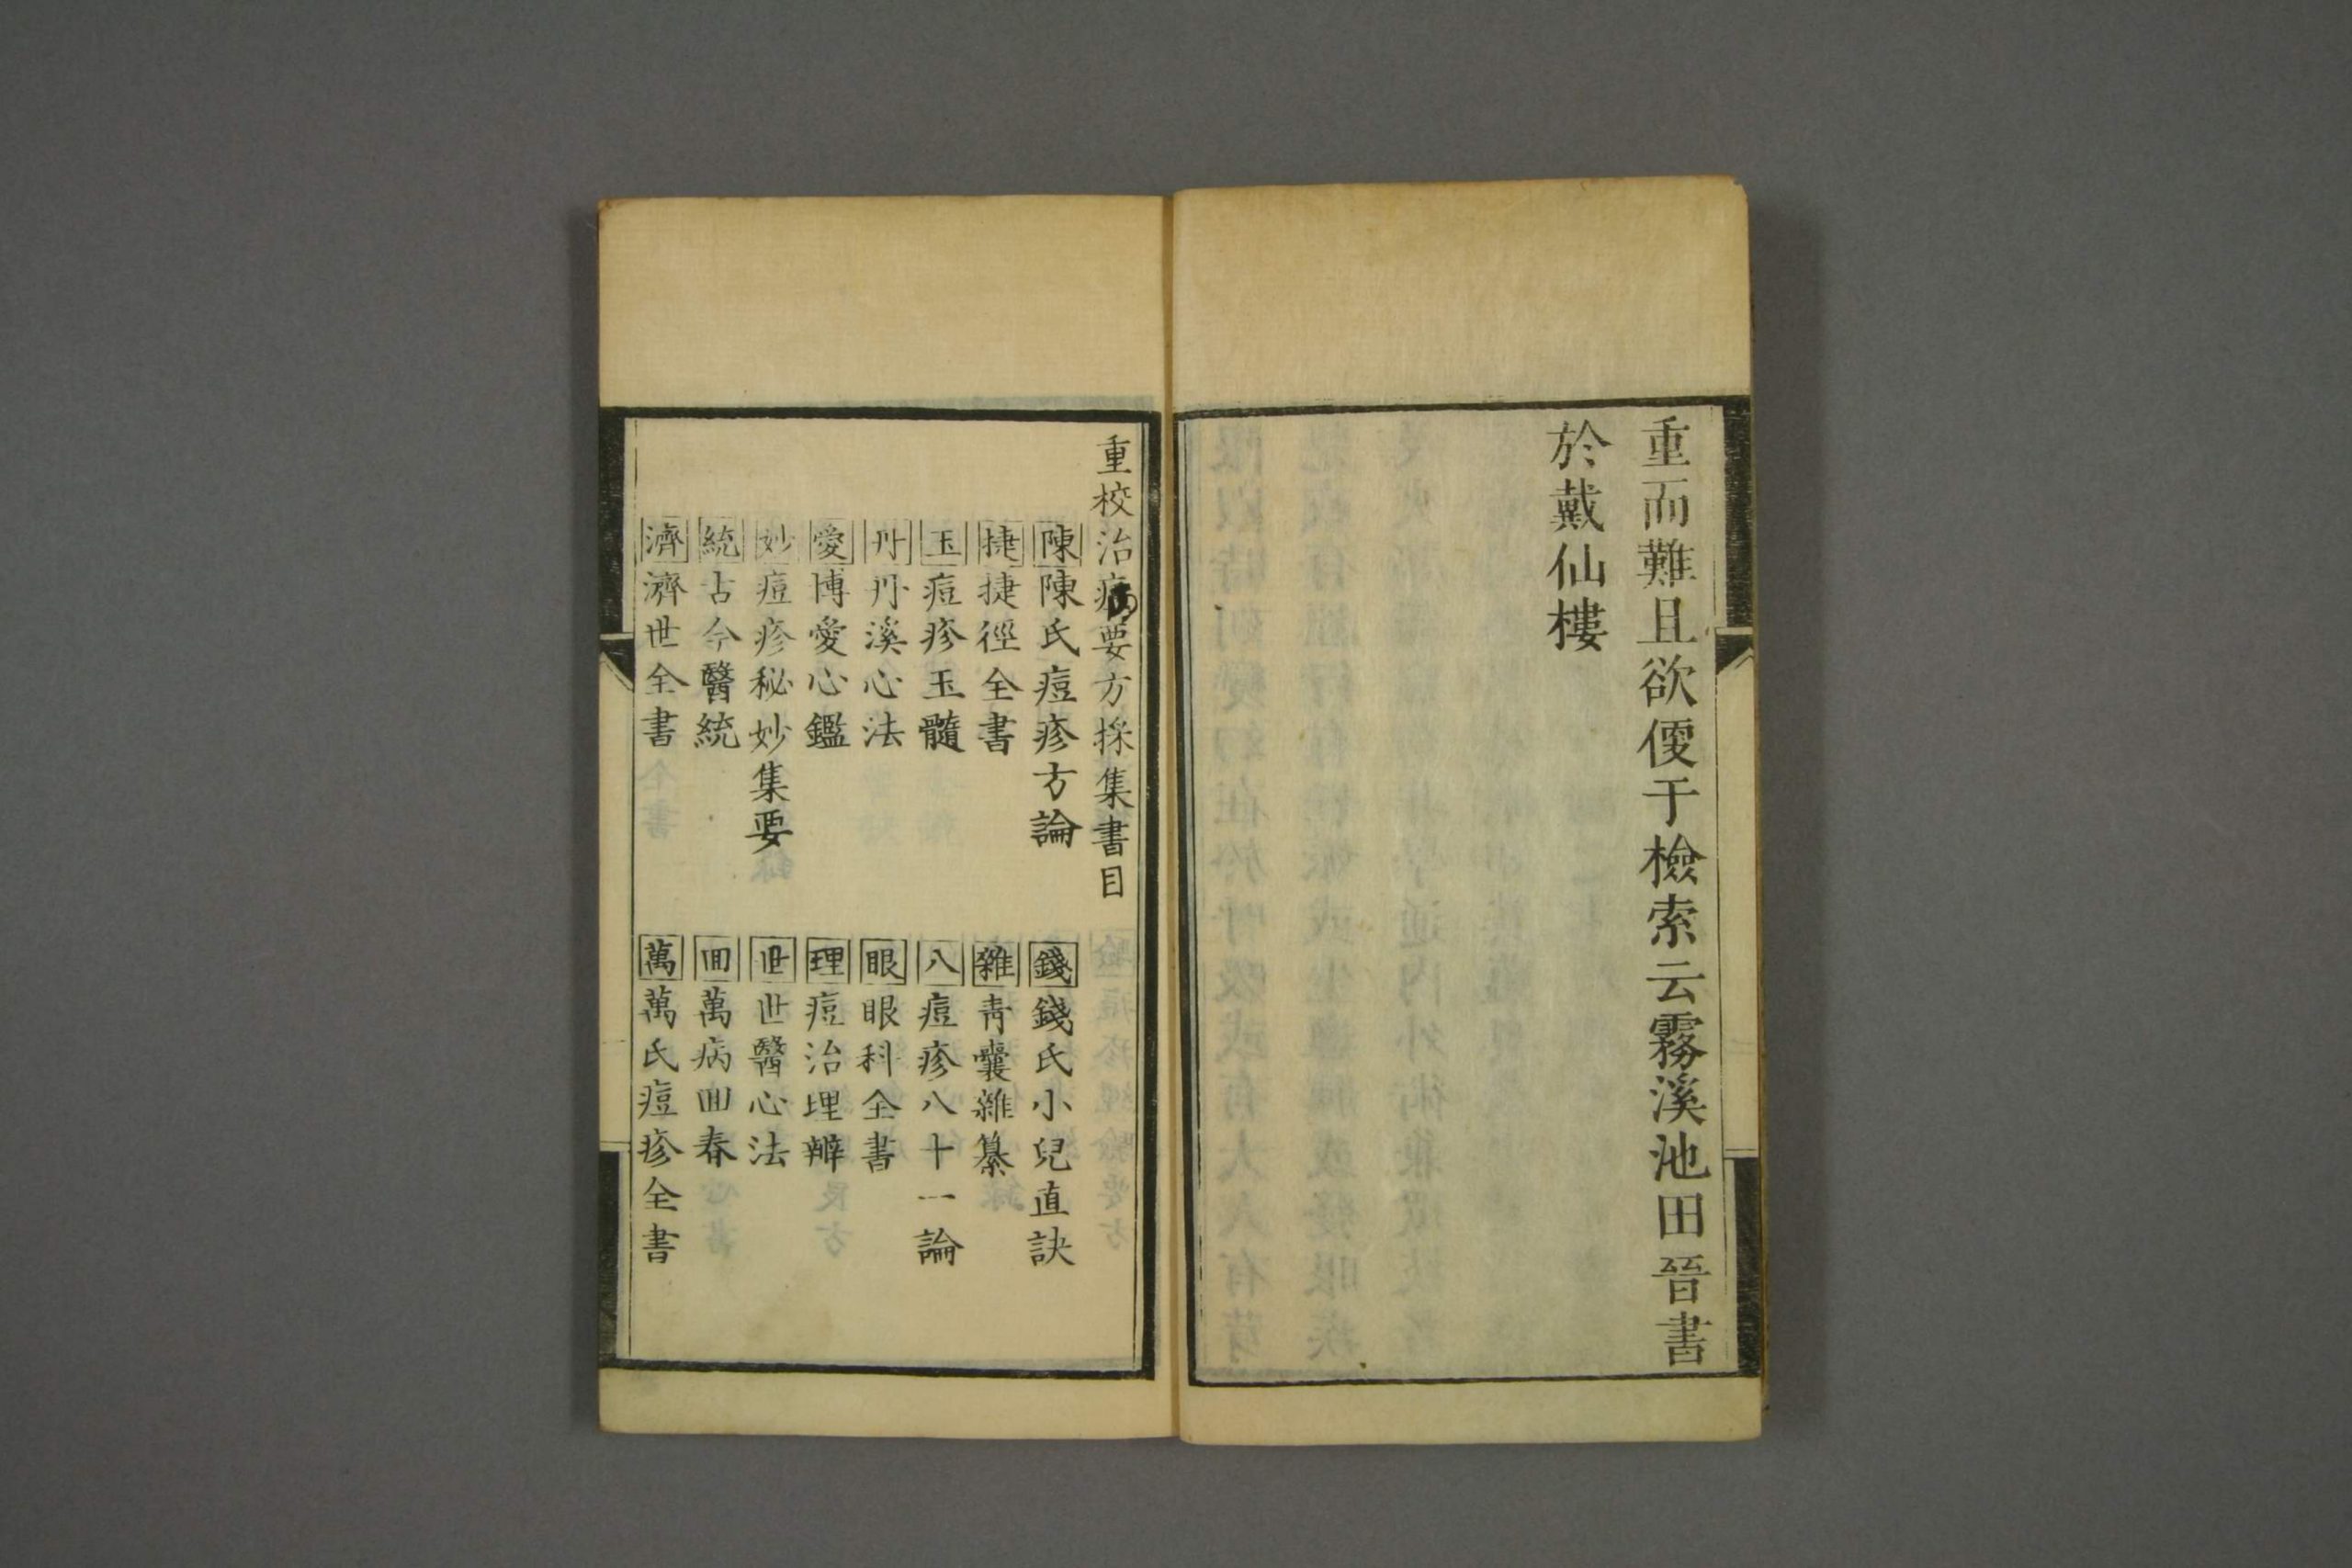 重而難且欲便于檢索云霧溪池田晉書
於戴仙樓
重校治痘要方採集書目
陳 陳氏痘疹方論
錢 錢氏小兒直訣
捷 捷徑全書
雜 青囊雜纂
玉 痘疹玉髓
八 痘疹八十一論
丹 丹溪心法
眼 眼科全書
愛 博愛心鑑
理 痘治理辨
妙 痘疹秘妙集要
世 世醫心法
統 古今醫統
囬 萬病囬春
濟 濟世全書
萬 萬氏痘疹全書